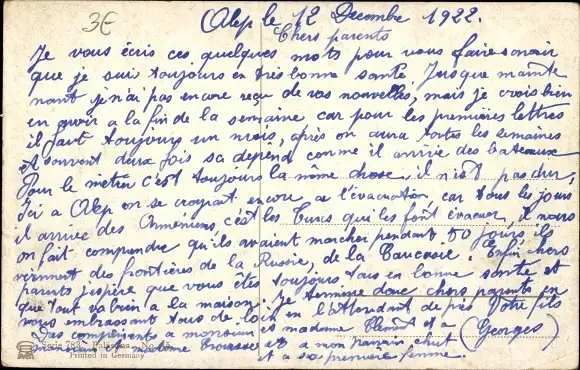 3€
Alep le 12 Decembre 1922.
Chers parents
Je vous écris ces quelques mots pour vous faire savoir
que je suis toujours en très bonne santé Jusque mainte
nant je n'ai pas encore reçu de vos nouvelles, mais je crois bien
en avoir a la fin de la semaine car pour les premières lettres
il faut toujours un mois, après on aura toutes les semaines
et souvent deux fois sa dépend comme il arrive des bateaux
Pour le métier c'est toujours la même chose, il n'est pas dur,
Ici a Alep on se croyait encore a l'évacuation, car tous les jours
il arrive des Arméniens, c'est les Turcs qui les font évacuer, il nous
on fait comprendre qu'ils avaient marcher pendant 50 jours, ils
viennent des frontières de la Russie, de la Caucasie. Enfin chers
parents j'espère que vous êtes toujours tous en bonne santé et
que tout va bien a la maison. Je termine donc chers parents en
vous embrassant tous de loin en l'attendant de près Votre fils
Des compliments a monsieur et madame Clément et a (Georges)
monsieur et madame et a mon parrain
et a sa première femme.
Serie 783. Palästina. No.
Printed in Germany